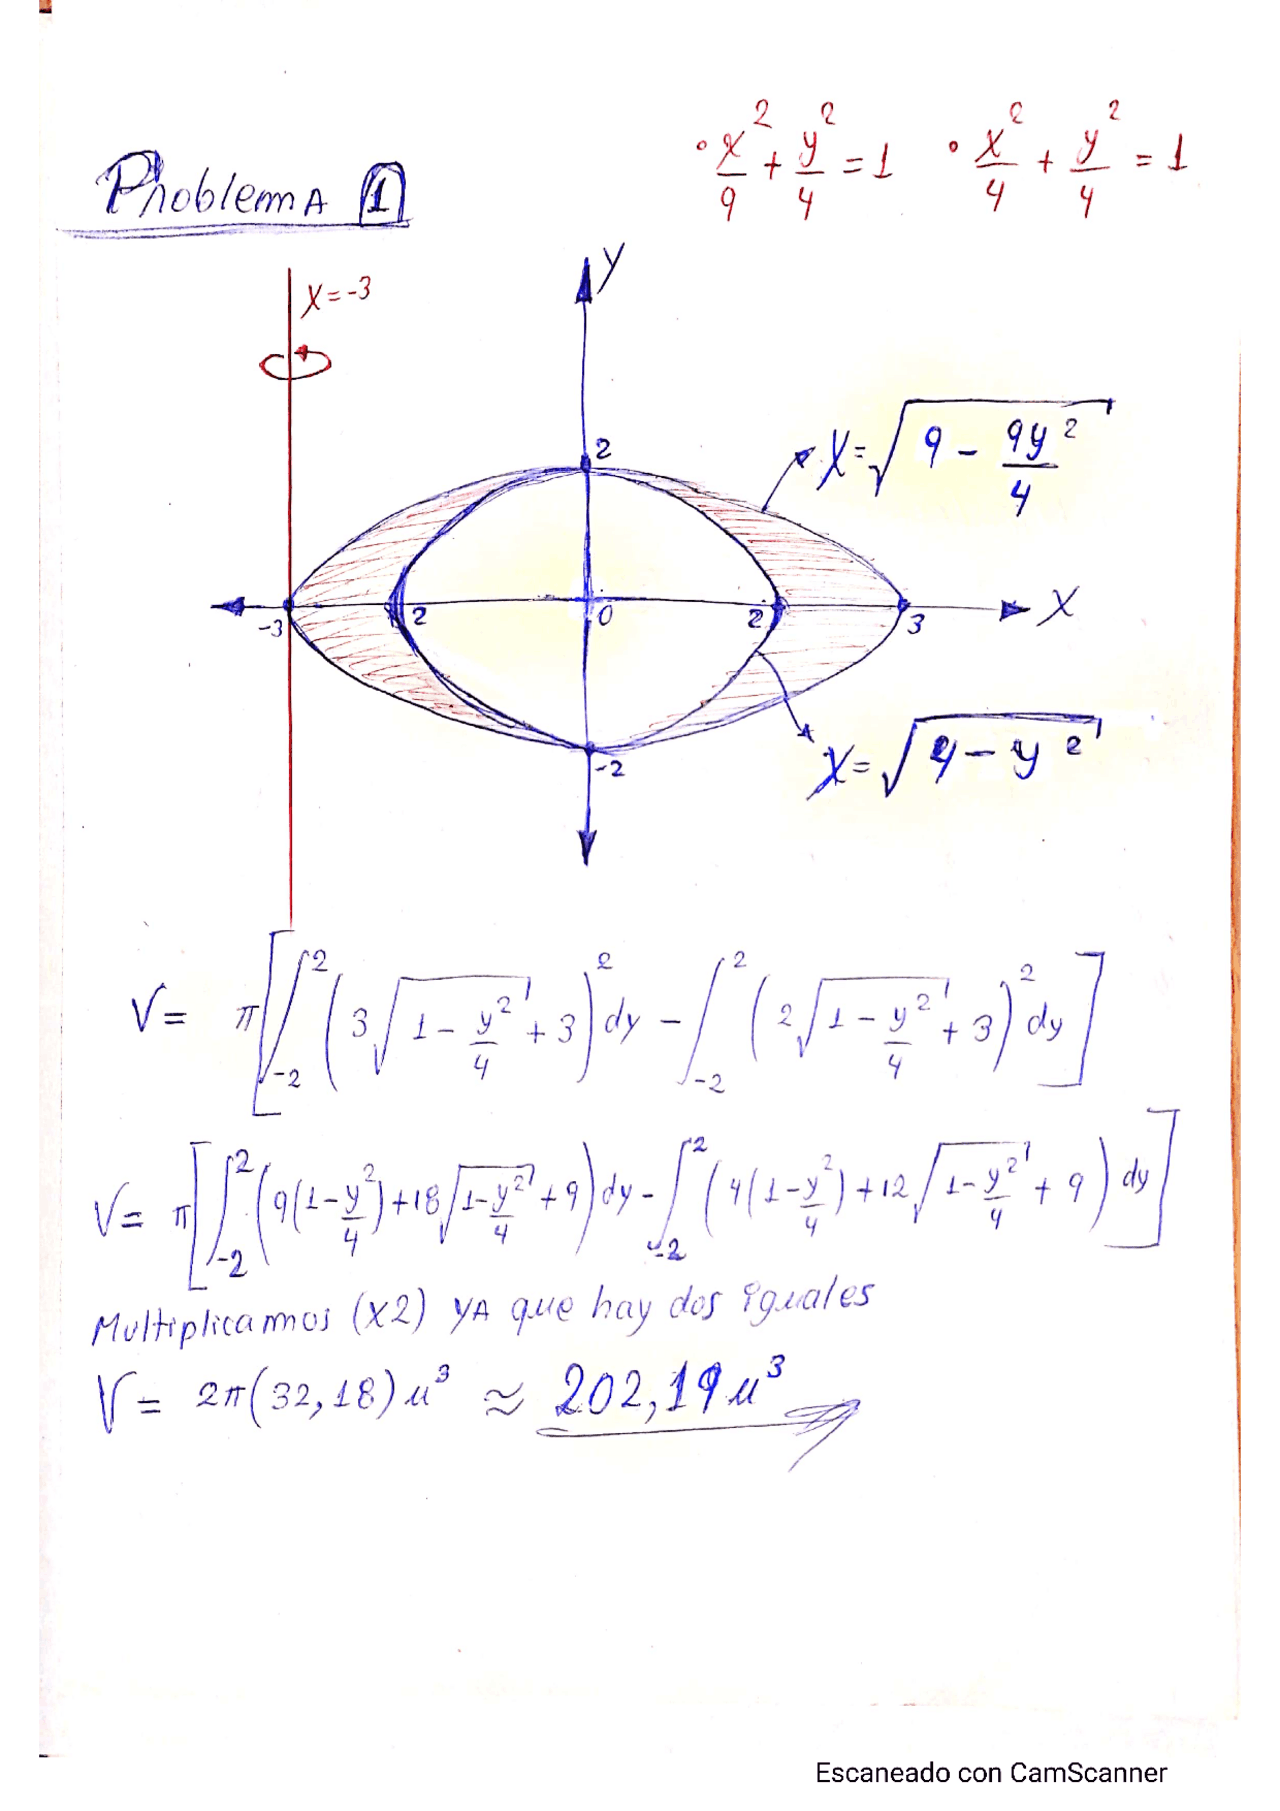 • x²/9 + y²/4 = 1 • x²/4 + y²/4 = 1
Problema 1
Y
X = -3
2
X = √(9 - 9y²/4)
-3 2 0 2 3 X
-2
X = √(4 - y²)
V = π[∫₋₂² (3√(1 - y²/4) + 3)² dy - ∫₋₂² (2√(1 - y²/4) + 3)² dy]
V = π[∫₋₂² (9(1 - y²/4) + 18√(1 - y²/4) + 9) dy - ∫₋₂² (4(1 - y²/4) + 12√(1 - y²/4) + 9) dy]
Multiplicamos (x2) YA que hay dos iguales
V = 2π(32,18) u³ ≈ 202,19 u³
Escaneado con CamScanner